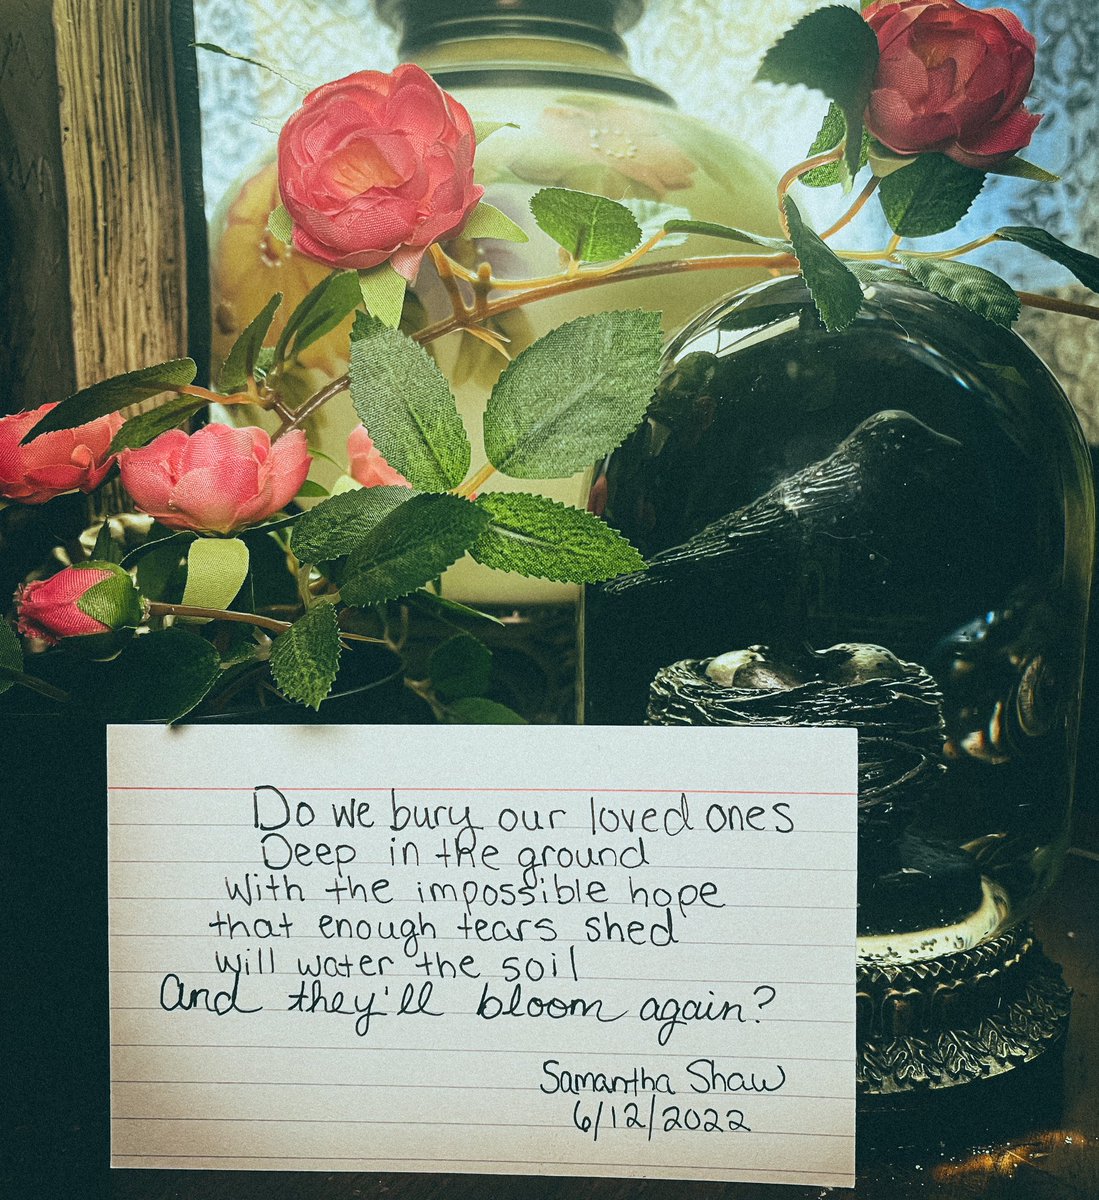 Do we bury our loved ones
Deep in the ground
With the impossible hope
that enough tears shed
will water the soil
And they'll bloom again?
Samantha Shaw
6/12/2022